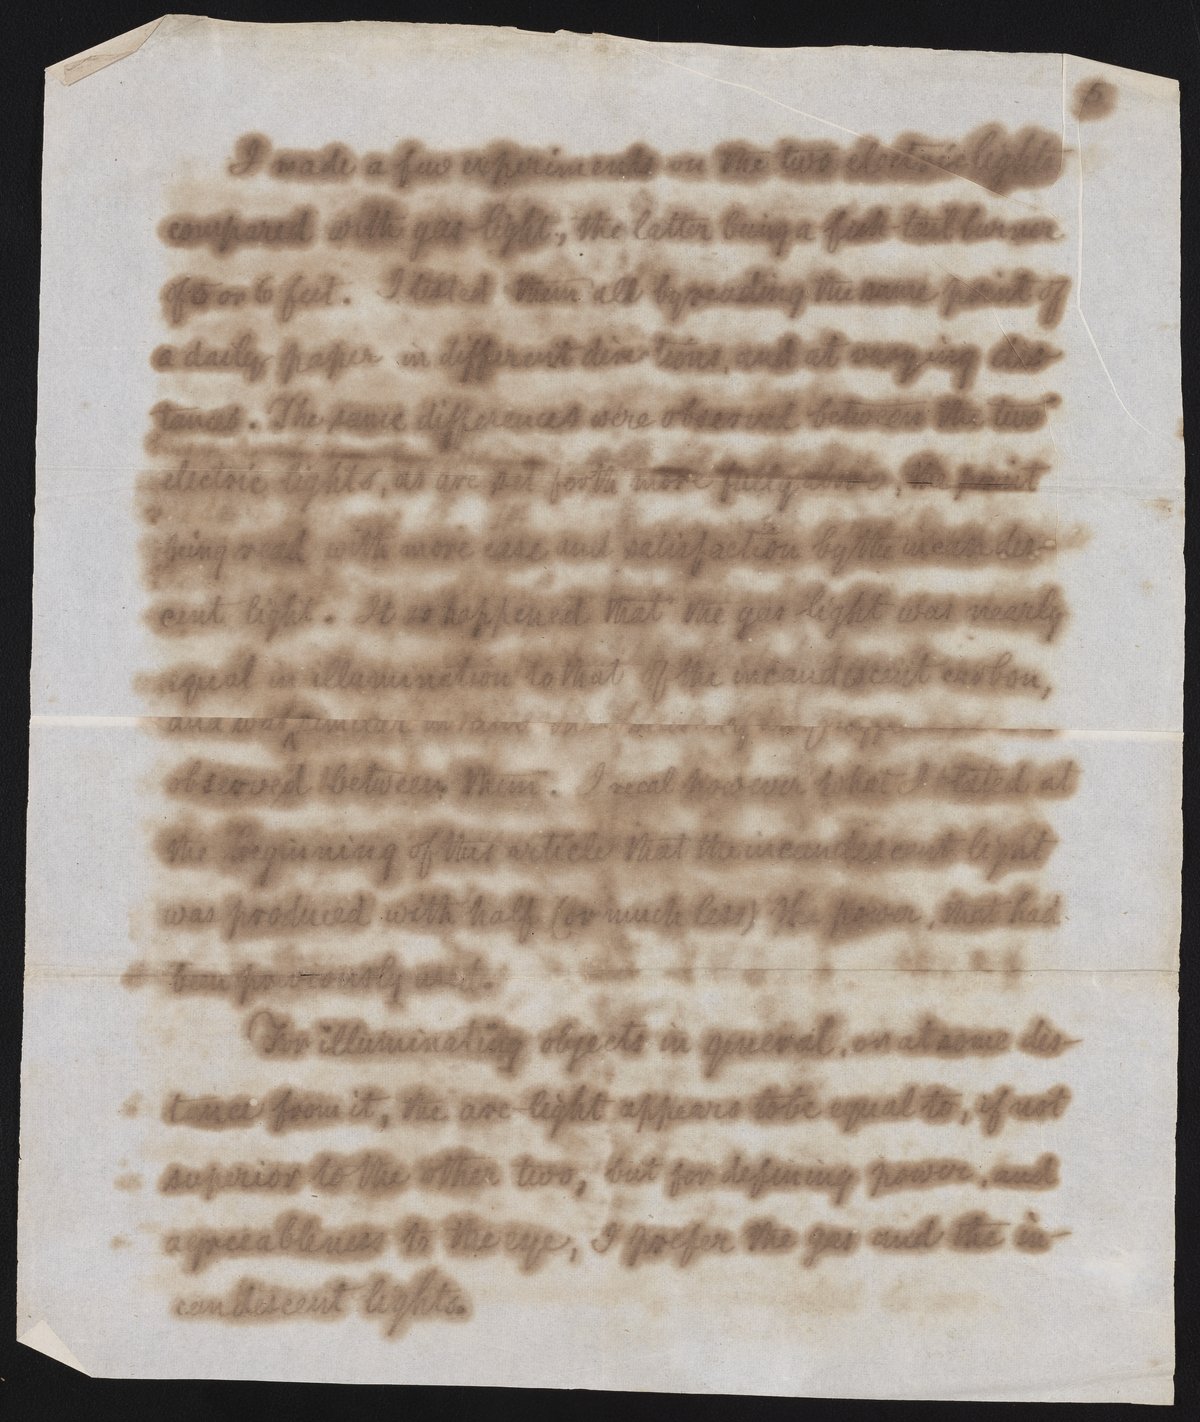 I made a few experiments on the two electric lights
compared with gas-light, the latter being a fish-tail burner
of 5 or 6 feet. I tested them all by reading the same print of
a daily paper in different directions, and at varying dis-
tances. The same differences were observed between the two
electric lights, as are set forth more fully above, the print
being read with more ease and satisfaction by the incandes-
cent light. It so happened that the gas light was nearly
equal in illumination to that of the incandescent carbon,
and was similar in
observed between them. I recal however what I stated at
the beginning of this article that the incandescent light
was produced with half (or much less) the power, that had
been previously used.
For illuminating objects in general, or at some dis-
tance from it, the arc-light appears to be equal to, if not
superior to the other two, but for defining power, and
agreeableness to the eye, I prefer the gas and the in-
candescent lights.